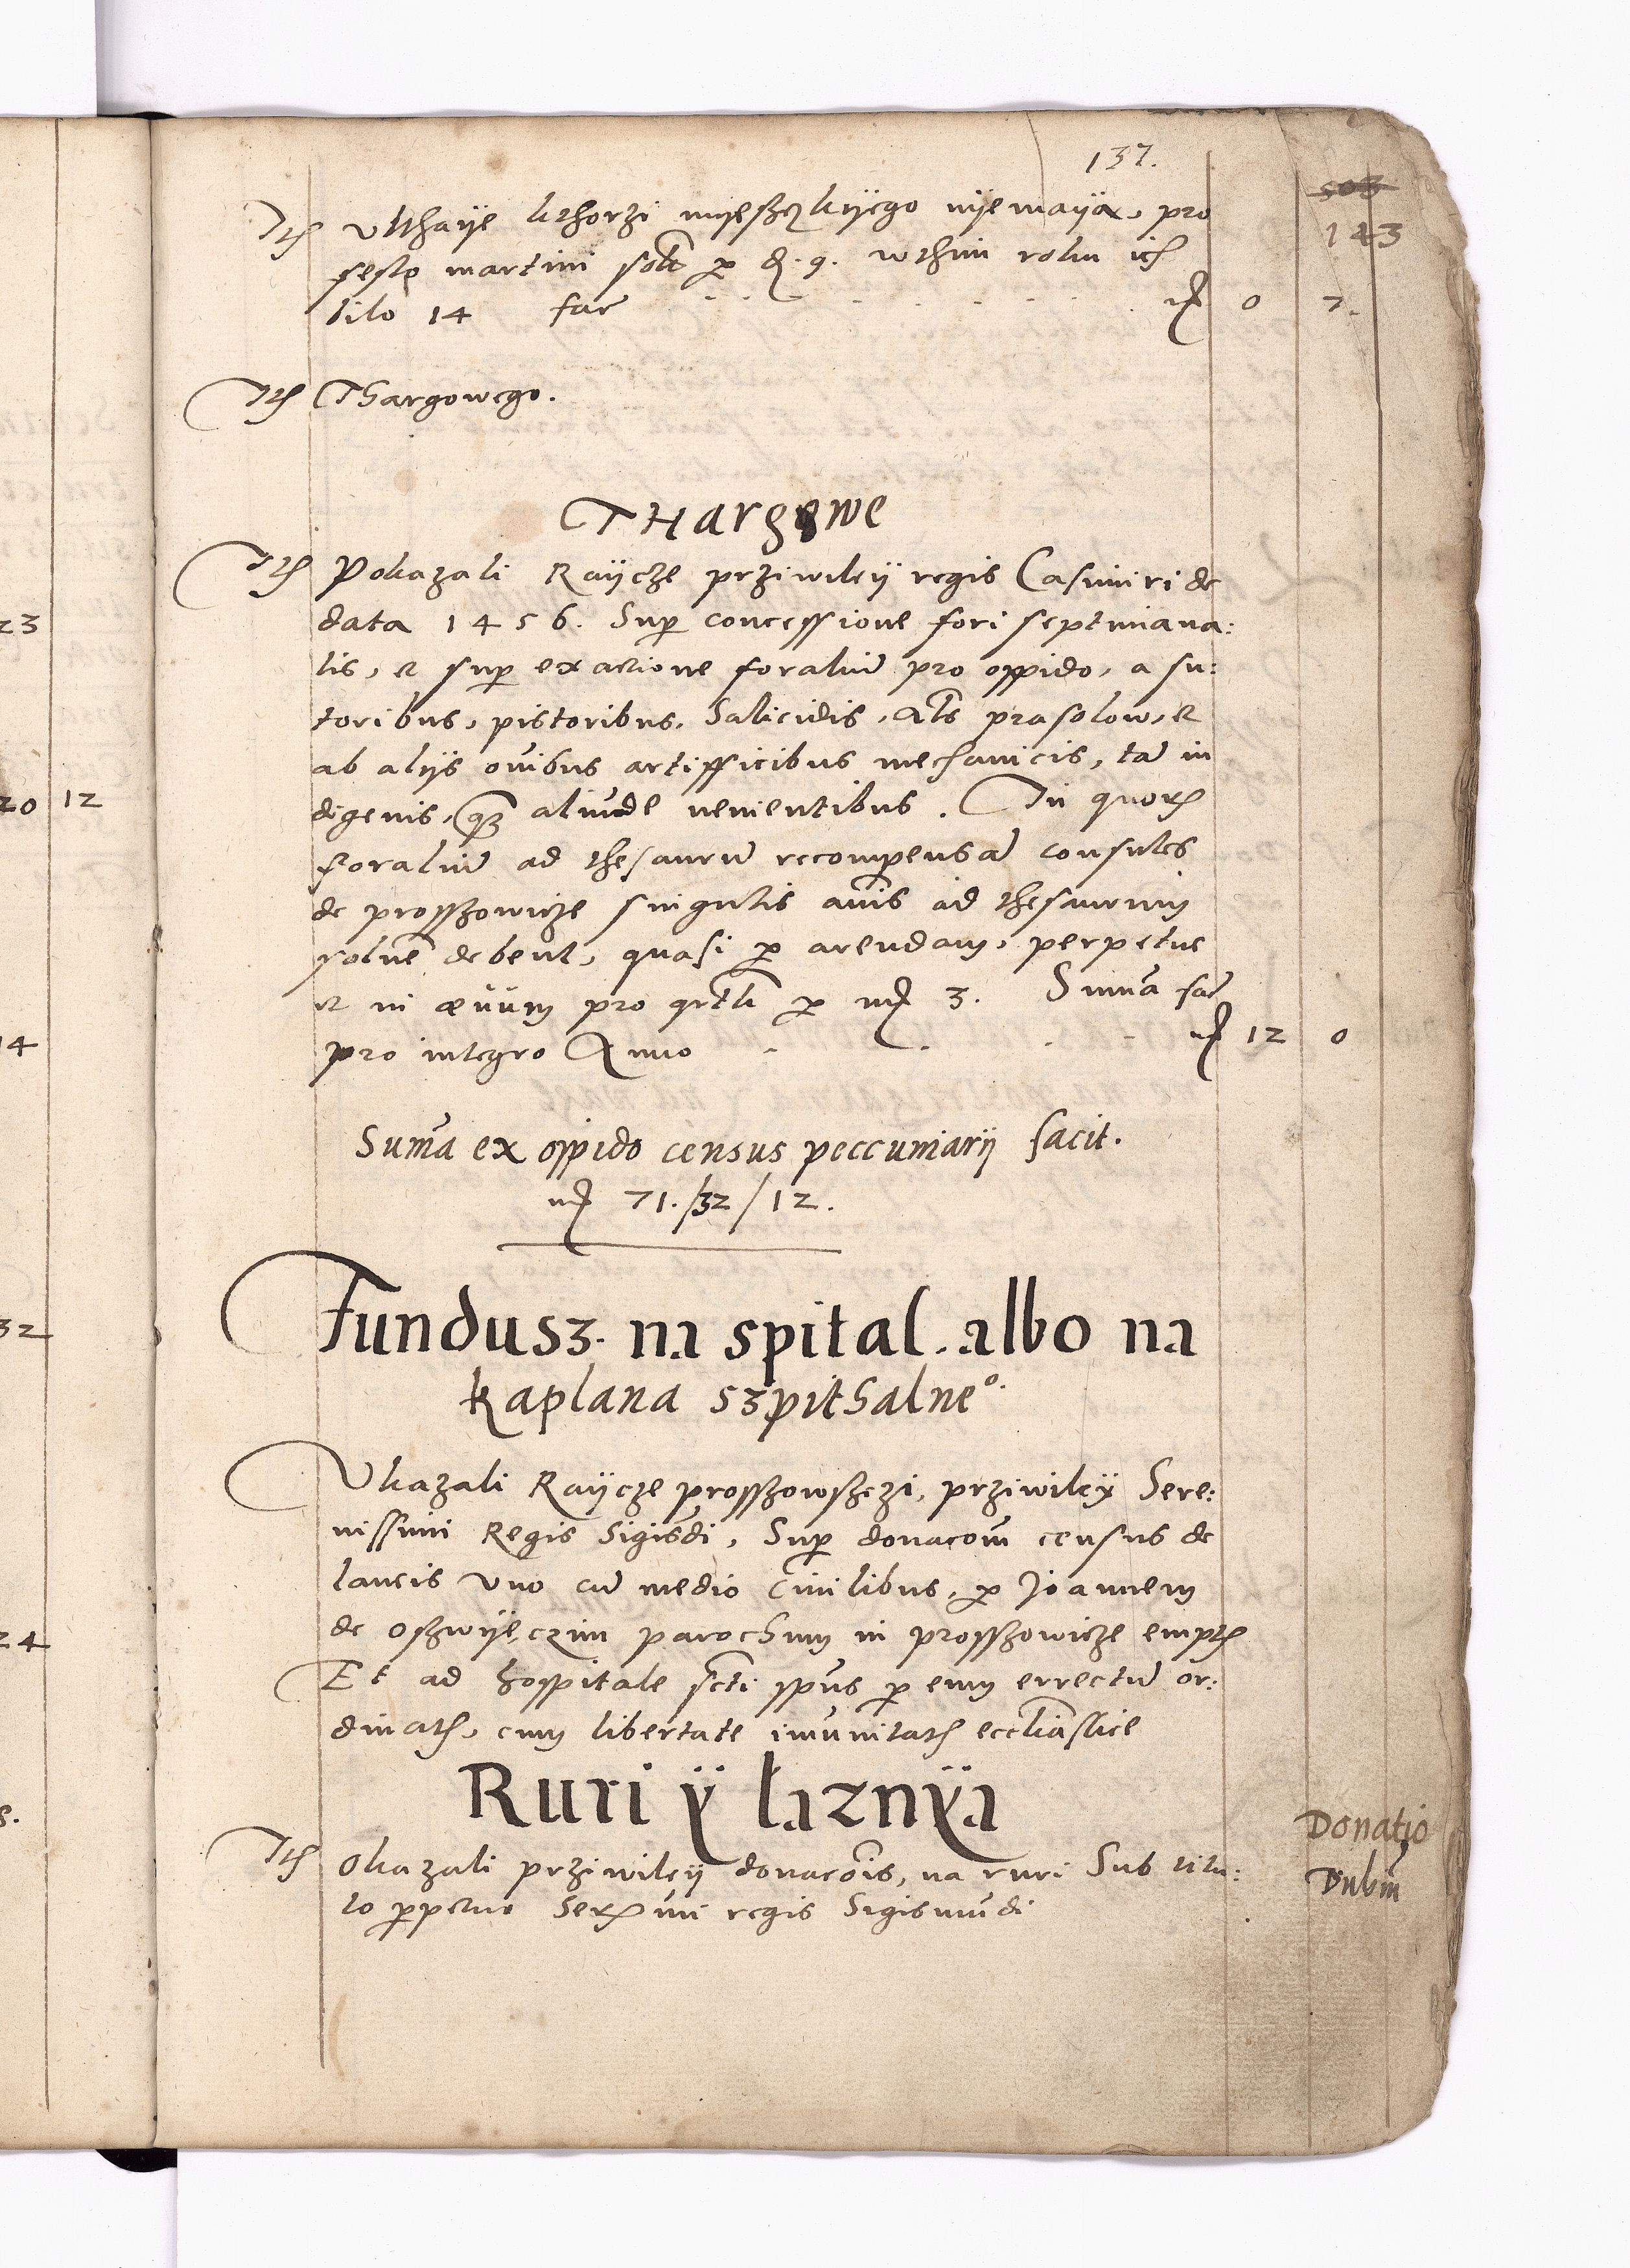 137.
503
143
Ith Ukthaÿe kthorzi myeszkÿego nÿe maÿa, pro
festo martini solt per d. 9. wthim roku ich
bilo 14 fac mr 0 7.
Ith Thargowego.
THargowe
Ith Pokazali Raÿcze prziwileÿ regis Casimiri de
data 1456. Super concessione fori septimana:
lis, et super exactione foraliu pro oppido, a su:
toribus, pistoribus, Salicidis, als prasolow, et
ab alÿs oibus artifficibus mechanicis, ta in
digenis, q aliunde venientibus. In quor
foraliu ad thesauru recompensa consules
de prosszowicze singulis anis ad thesaurum
solue debent, quasi per arendam, perpetue
et in ævum pro qrtli per mr 3. Suma fac
pro integro Anno mr 12 0
Suma ex oppido census peccuniarÿ facit.
mr 71./32/12.
Fundusz na spital albo na
kaplana szpithalneo.
Ukazali Raÿcze prosszowszczi, prziwileÿ Sere:
nissimi Regis Sigismdi, Super donacom census de
laneis Uno cu medio Civilibus, per Joannem
de oszwÿeczim parochum in prosszowicze empt
Et ad hospitale scti spus per eum errectu or:
dinath, cum libertate imunitath eccliastice
Ruri ÿ laznÿa
Ith Okazali prziwileÿ donacois, na ruri Sub titu:
lo perpetuo Serximi regis Sigismudi
Donatio
Dubm
23
20 12
14
32
24